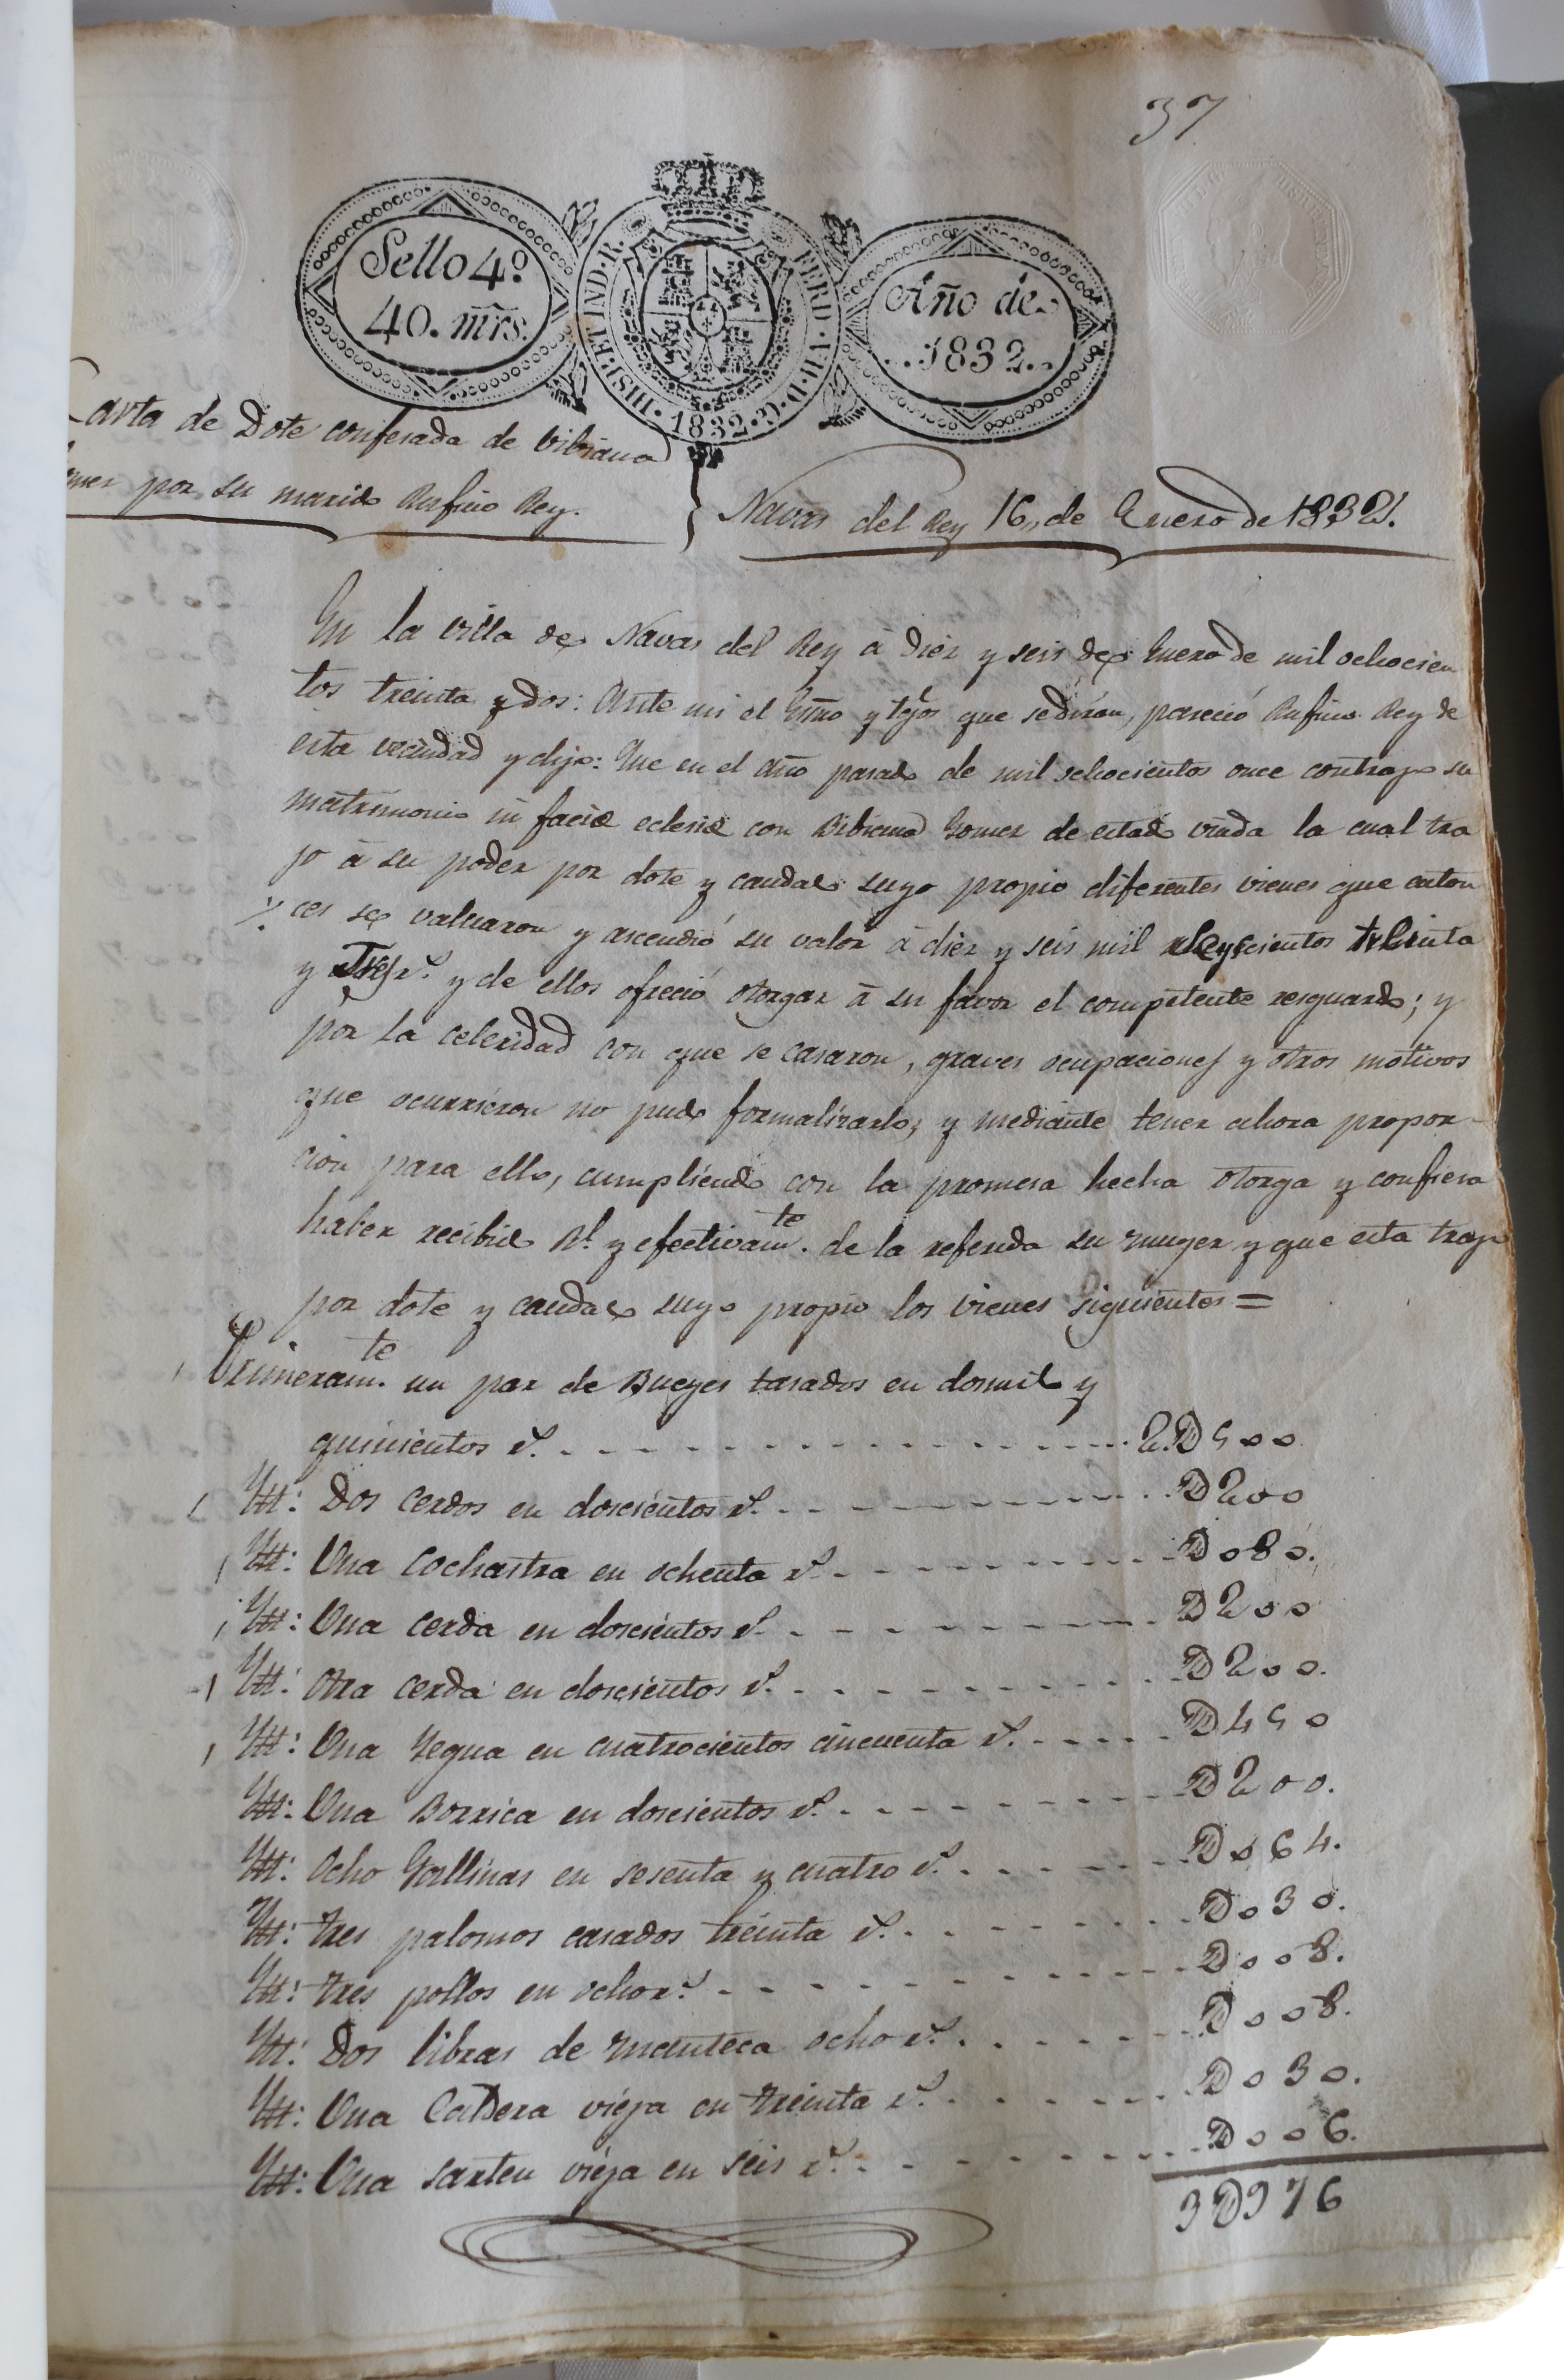 37
Sello 4º
40. mrs.
HISP. ET IND. R.
FERD. VII. D. G.
1832
Año de
1832.
Carta de Dote confesada de Bibiana
Gomez por su marido Rufino Rey.
Navas del Rey 16,, de Enero de 1832.
En la villa de Navas del Rey à diez y seis de Enero de mil ochocien
tos treinta y dos: Ante mi el Essno y tgos que se dirán, pareció Rufino Rey de
esta vecindad y dijo: Que en el año pasado de mil ochocientos once contrajo su
matrimonio in facie eclesie con Bibiana Gomez de estado viuda la cual tra
jo à su poder por dote y caudal suyo propio diferentes vienes que enton
ces se valuaron y ascendió su valor à diez y seis mil seyscientos treinta
y Tres rs. y de ellos ofreció otorgar à su favor el competente resguardo; y
por la celeridad con que se casaron, graves ocupaciones y otros motivos
que ocurrieron no pudo formalizarlo; y mediante tener ahora propor-
cion para ello, cumpliendo con la promesa hecha otorga y confiesa
haber recibido Rl. y efectivamte. de la referida su muger y que esta trajo
por dote y caudal suyo propio los vienes siguientes =
Primeramte. un par de Bueyes tasados en dosmil y
quinientos rs. 2.D500
Ytt: Dos cerdos en doscientos rs. D200
Ytt: Una cochastra en ochenta rs. D080.
Ytt: Una cerda en doscientos rs. D200
Ytt: Otra cerda en doscientos rs. D200.
Ytt: Una Yegua en cuatrocientos cincuenta rs. D450
Ytt: Una Borrica en doscientos rs. D200.
Ytt: Ocho Gallinas en sesenta y cuatro rs. D064.
Ytt: tres palomos casados treinta rs. D030.
Ytt: tres pollos en ocho rs. D008.
Ytt: Dos libras de manteca ocho rs. D008.
Ytt: Una Caldera vieja en treinta rs. D030.
Ytt: Una sarten vieja en seis rs. D006.
3D976